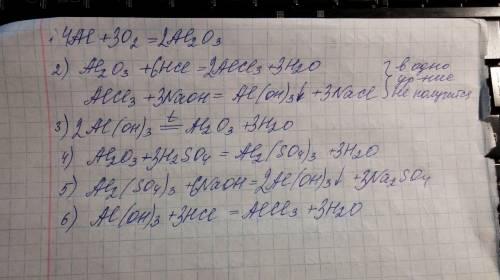 1. 4Al + 3O2 = 2Al2O3
2) Al2O3 + 6HCl = 2AlCl3 + 3H2O
AlCl3 + 3NaOH = Al(OH)3↓ + 3NaCl } в одно ур-ние не получится
3) 2Al(OH)3 =t= Al2O3 + 3H2O
4) Al2O3 + 3H2SO4 = Al2(SO4)3 + 3H2O
5) Al2(SO4)3 + 6NaOH = 2Al(OH)3↓ + 3Na2SO4
6) Al(OH)3 + 3HCl = AlCl3 + 3H2O